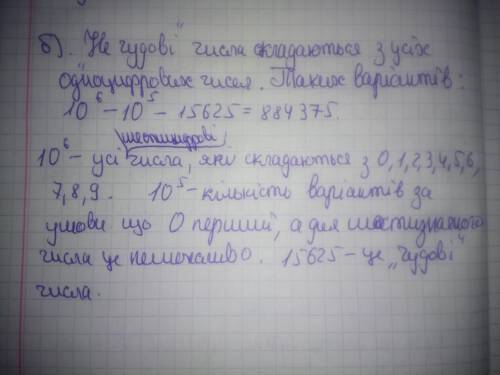 б). "Не чудові" числа складаються з усіх
одноцифрових чисел. Таких варіантів:
10⁶ - 10⁵ - 15625 = 884375.
шестицифрові
10⁶ - усі числа, яки складаються з 0,1,2,3,4,5,6,
7,8,9. 10⁵ - кількість варіантів за
умови що 0 перший, а для шестизначного
числа це неможливо. 15625 - це "чудові"
числа.